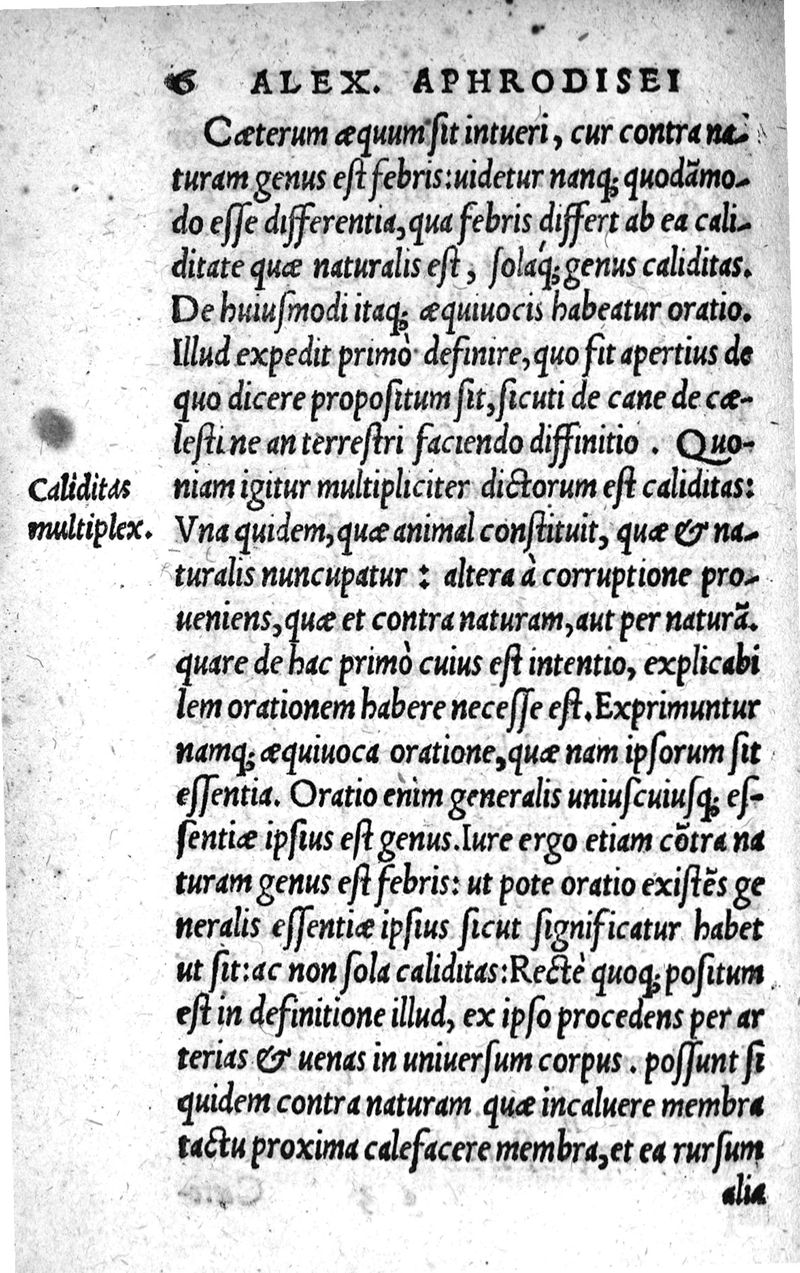 6 ALEX. APHRODISEI
Cæterum æquum sit intueri, cur contra na-
turam genus est febris: uidetur nanq; quodāmo-
do esse differentia, qua febris differt ab ea cali-
ditate quæ naturalis est, solaq́; genus caliditas.
De huiusmodi itaq; æquiuocis habeatur oratio.
Illud expedit primò definire, quo fit apertius de
quo dicere propositum sit, sicuti de cane de cæ-
lesti ne an terrestri faciendo diffinitio. Quo-
Caliditas multiplex.
niam igitur multipliciter dictorum est caliditas:
Vna quidem, quæ animal constituit, quæ & na-
turalis nuncupatur: altera à corruptione pro-
ueniens, quæ et contra naturam, aut per naturā.
quare de hac primò cuius est intentio, explicabi
lem orationem habere necesse est. Exprimuntur
namq; æquiuoca oratione, quæ nam ipsorum sit
essentia. Oratio enim generalis uniuscuiusq; es-
sentiæ ipsius est genus. Iure ergo etiam cōtra na
turam genus est febris: ut pote oratio existēs ge
neralis essentiæ ipsius sicut significatur habet
ut sit: ac non sola caliditas: Rectè quoq; positum
est in definitione illud, ex ipso procedens per ar
terias & uenas in uniuersum corpus. possunt si
quidem contra naturam quæ incaluere membra
tactu proxima calefacere membra, et ea rursum
alia